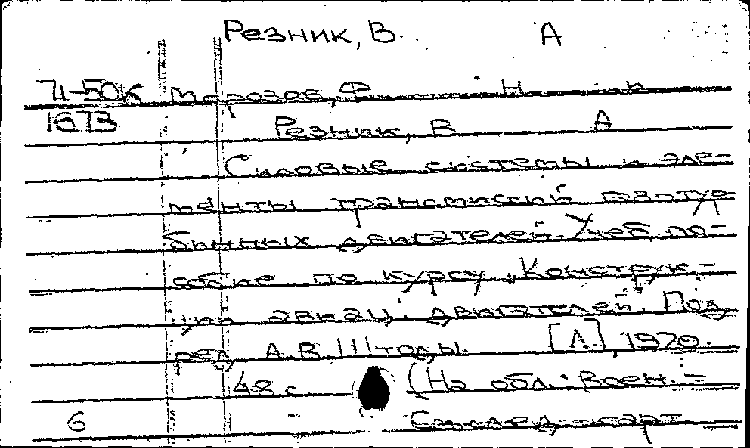 Резник, В. А
71-50к Морозов, Ф
1673 Резник, В А
Силовые системы и эле-
менты трансмиссий газотур
бинных двигателей. Учеб. по-
собие по курсу „Конструк-
ция авиац. двигателей". Под
ред. А.В. Штоды. [Л.], 1970.
48 с. (На обл.: Воен. -
6